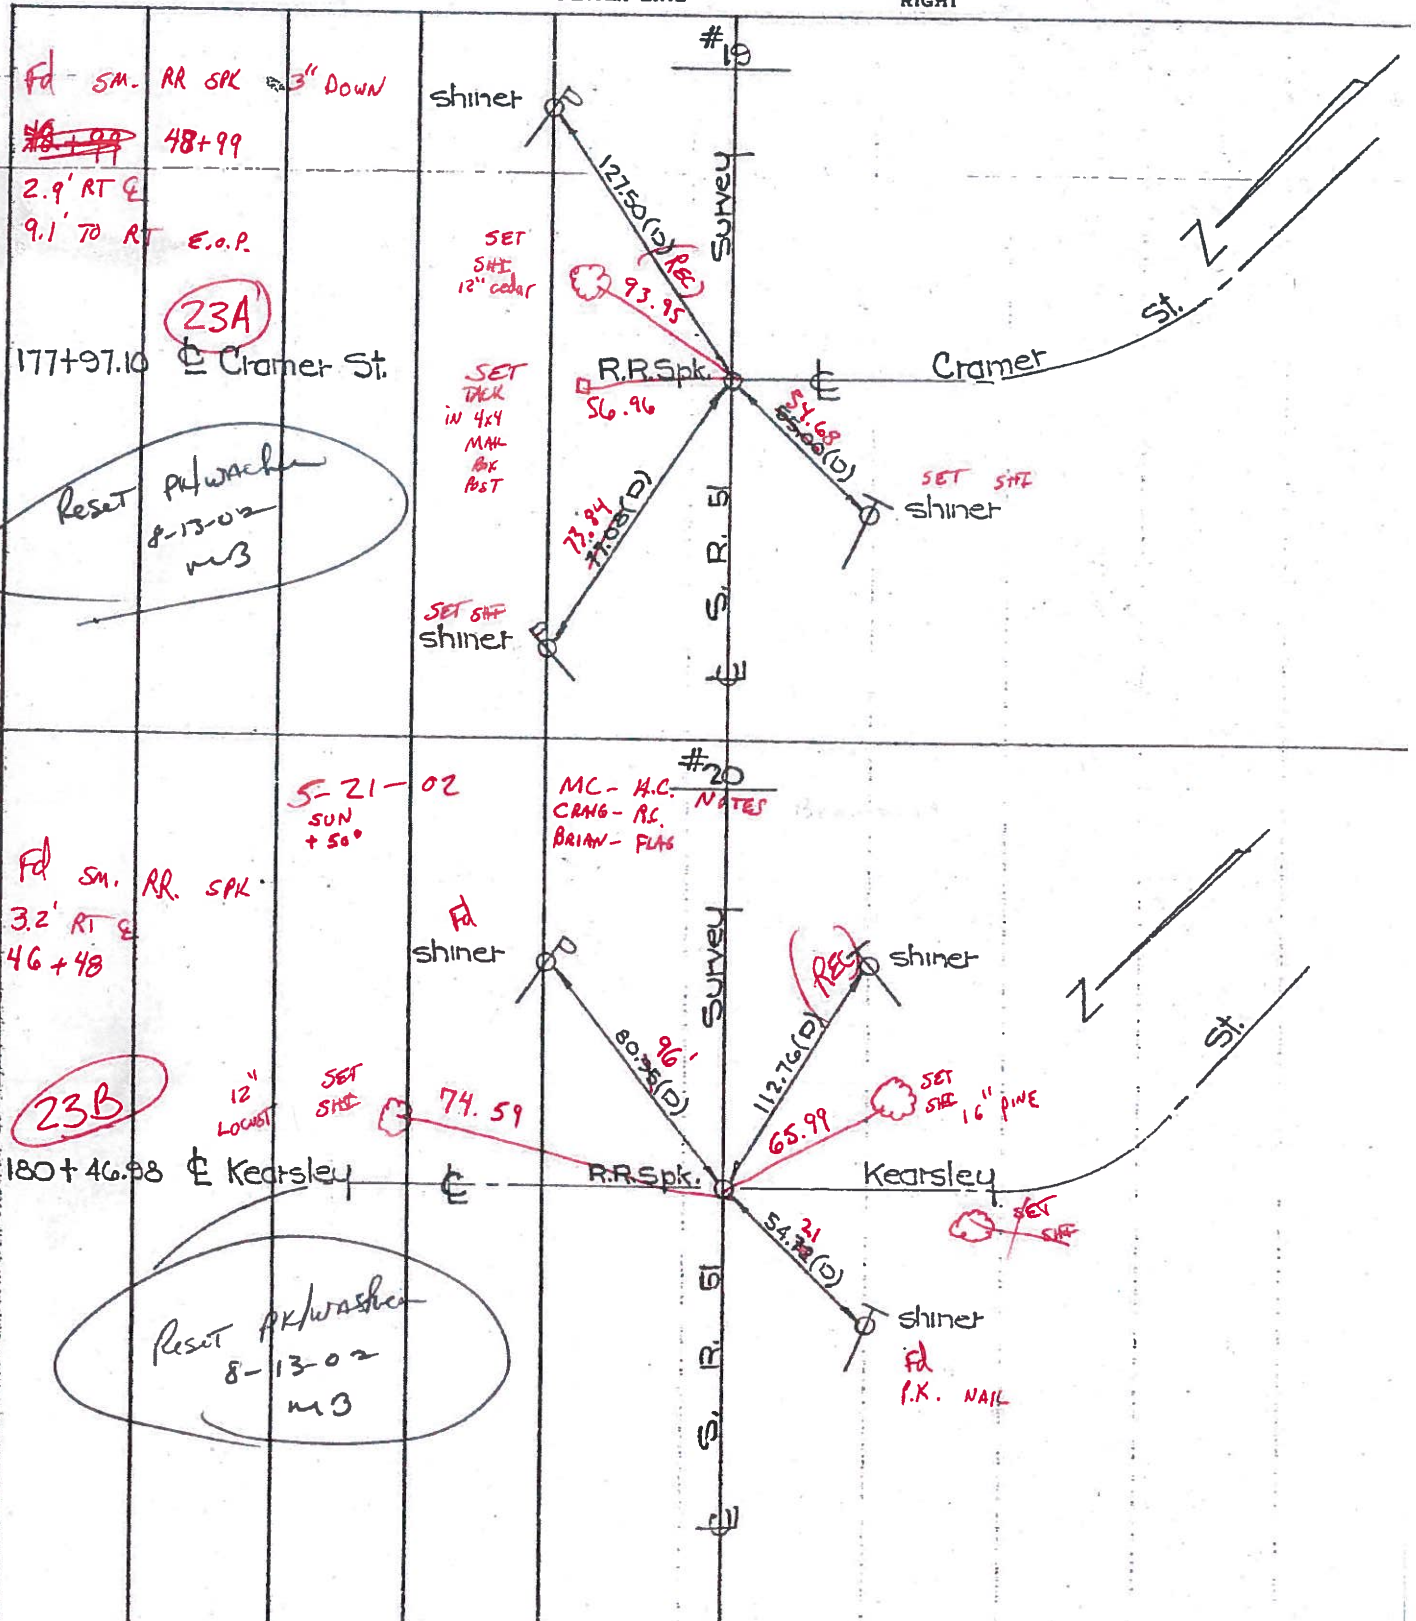 RIGHT
#19
Fd SM. RR SPK 3" DOWN
48+99
2.9' RT ℄
9.1' TO RT E.O.P.
23A
177+97.10 ℄ Cramer St.
Reset PK/WASHER
8-13-02
shiner
127.50(D)
(REC)
Survey
SET
12" cedar
93.95
R.R.Spk.
SET
TACK
IN 4x4
MAIL
BOX
POST
56.96
℄ Cramer St.
N
54.68
55.00(D)
SET SHI
shiner
73.84
77.08(D)
SET SHI
shiner
℄ S. R. 51
#20
NOTES
5-21-02
SUN
+50°
MC - H.C.
CRAIG - R.C.
BRIAN - FLAG
Fd SM. RR. SPK
3.2' RT ℄
46+48
Fd
shiner
Survey
(REC)
shiner
N
80.95(D)
96
112.76(D)
23B
12"
LOCUST
SET
SHI
74.59
65.99
SET
SHI
16" PINE
180+46.98 ℄ Kearsley
℄
R.R.Spk.
Kearsley St.
SET
SHI
54.72(D)
21
shiner
Fd
P.K. NAIL
Reset PK/WASHER
8-13-02
℄ S. R. 51